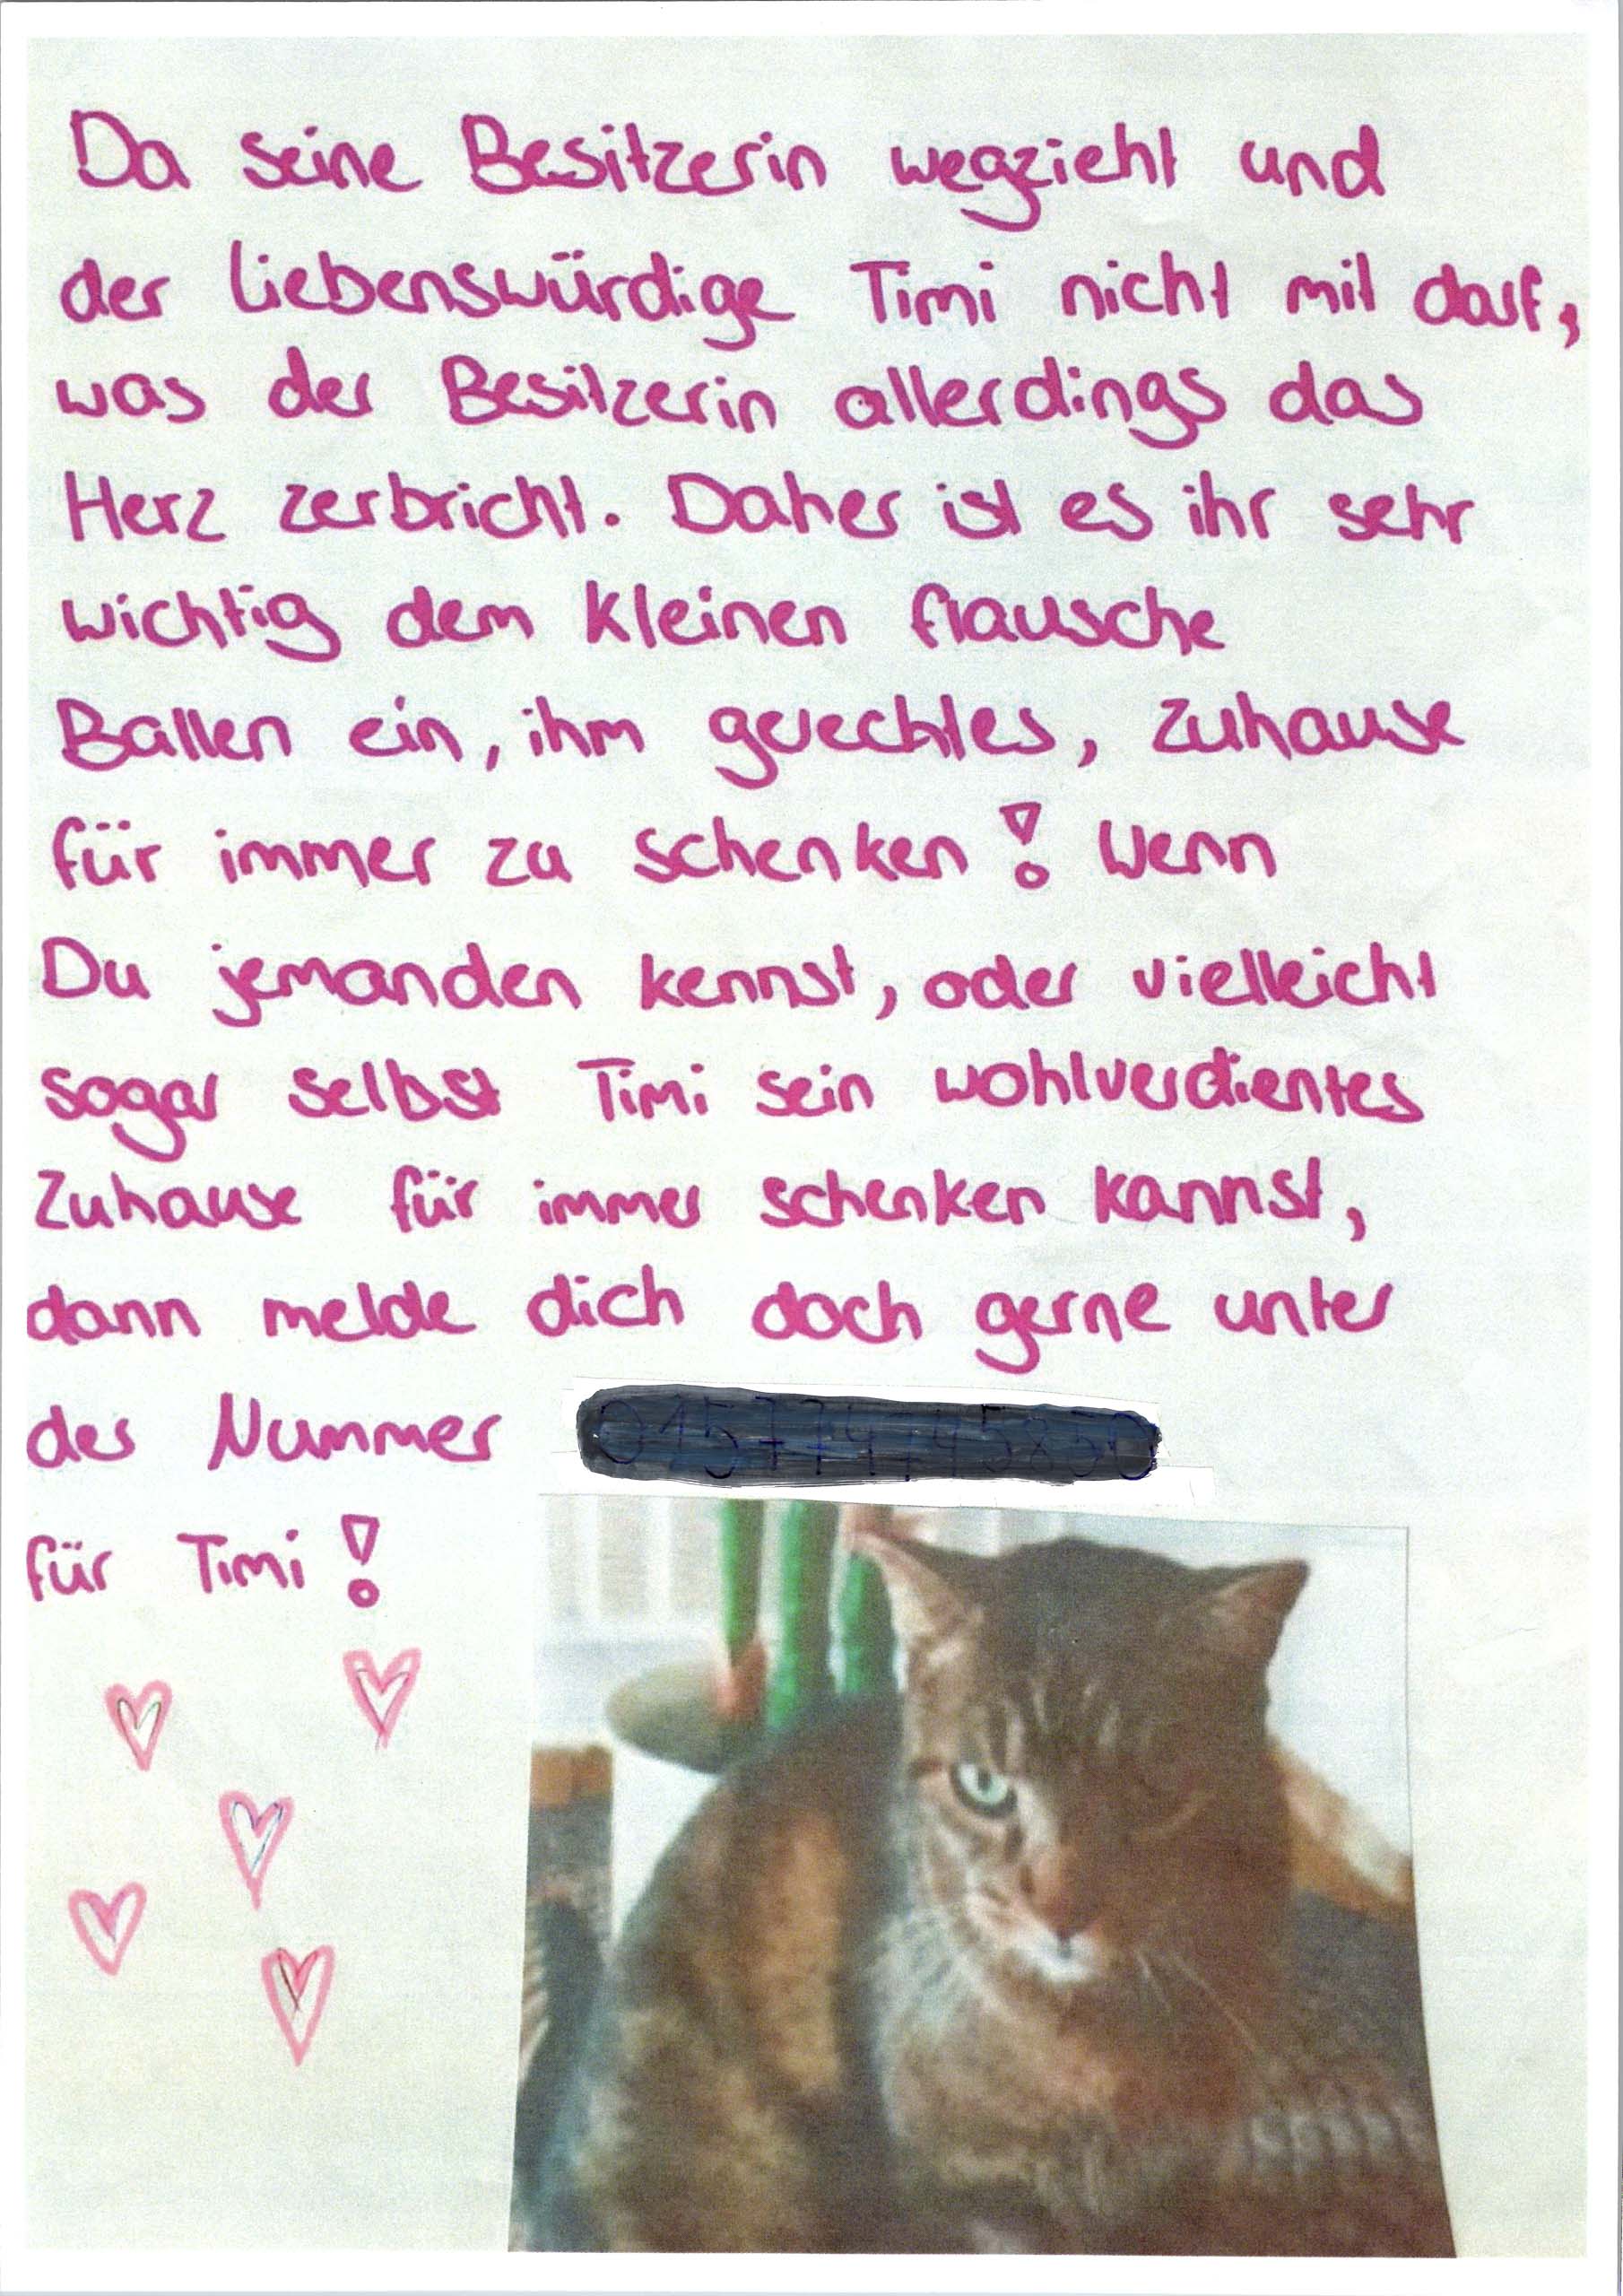 Da seine Besitzerin wegzieht und
der liebenswürdige Timi nicht mit darf,
was der Besitzerin allerdings das
Herz zerbricht. Daher ist es ihr sehr
wichtig dem kleinen flausche
Ballen ein, ihm gerechtes, Zuhause
für immer zu schenken! Wenn
Du jemanden kennst, oder vielleicht
sogar selbst Timi sein wohlverdientes
Zuhause für immer schenken kannst,
dann melde dich doch gerne unter
der Nummer
für Timi!